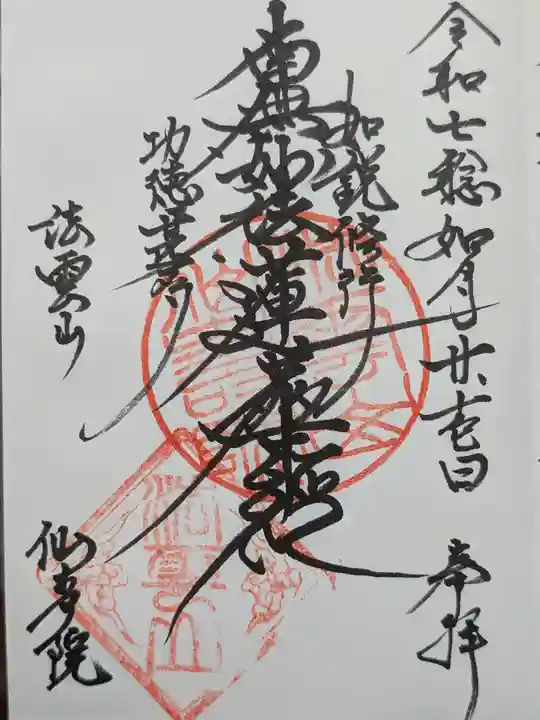 令和七稔如月廿壱日
奉拝
如説修行
南無妙法蓮華経
功徳甚多
法雲山
仙寿院